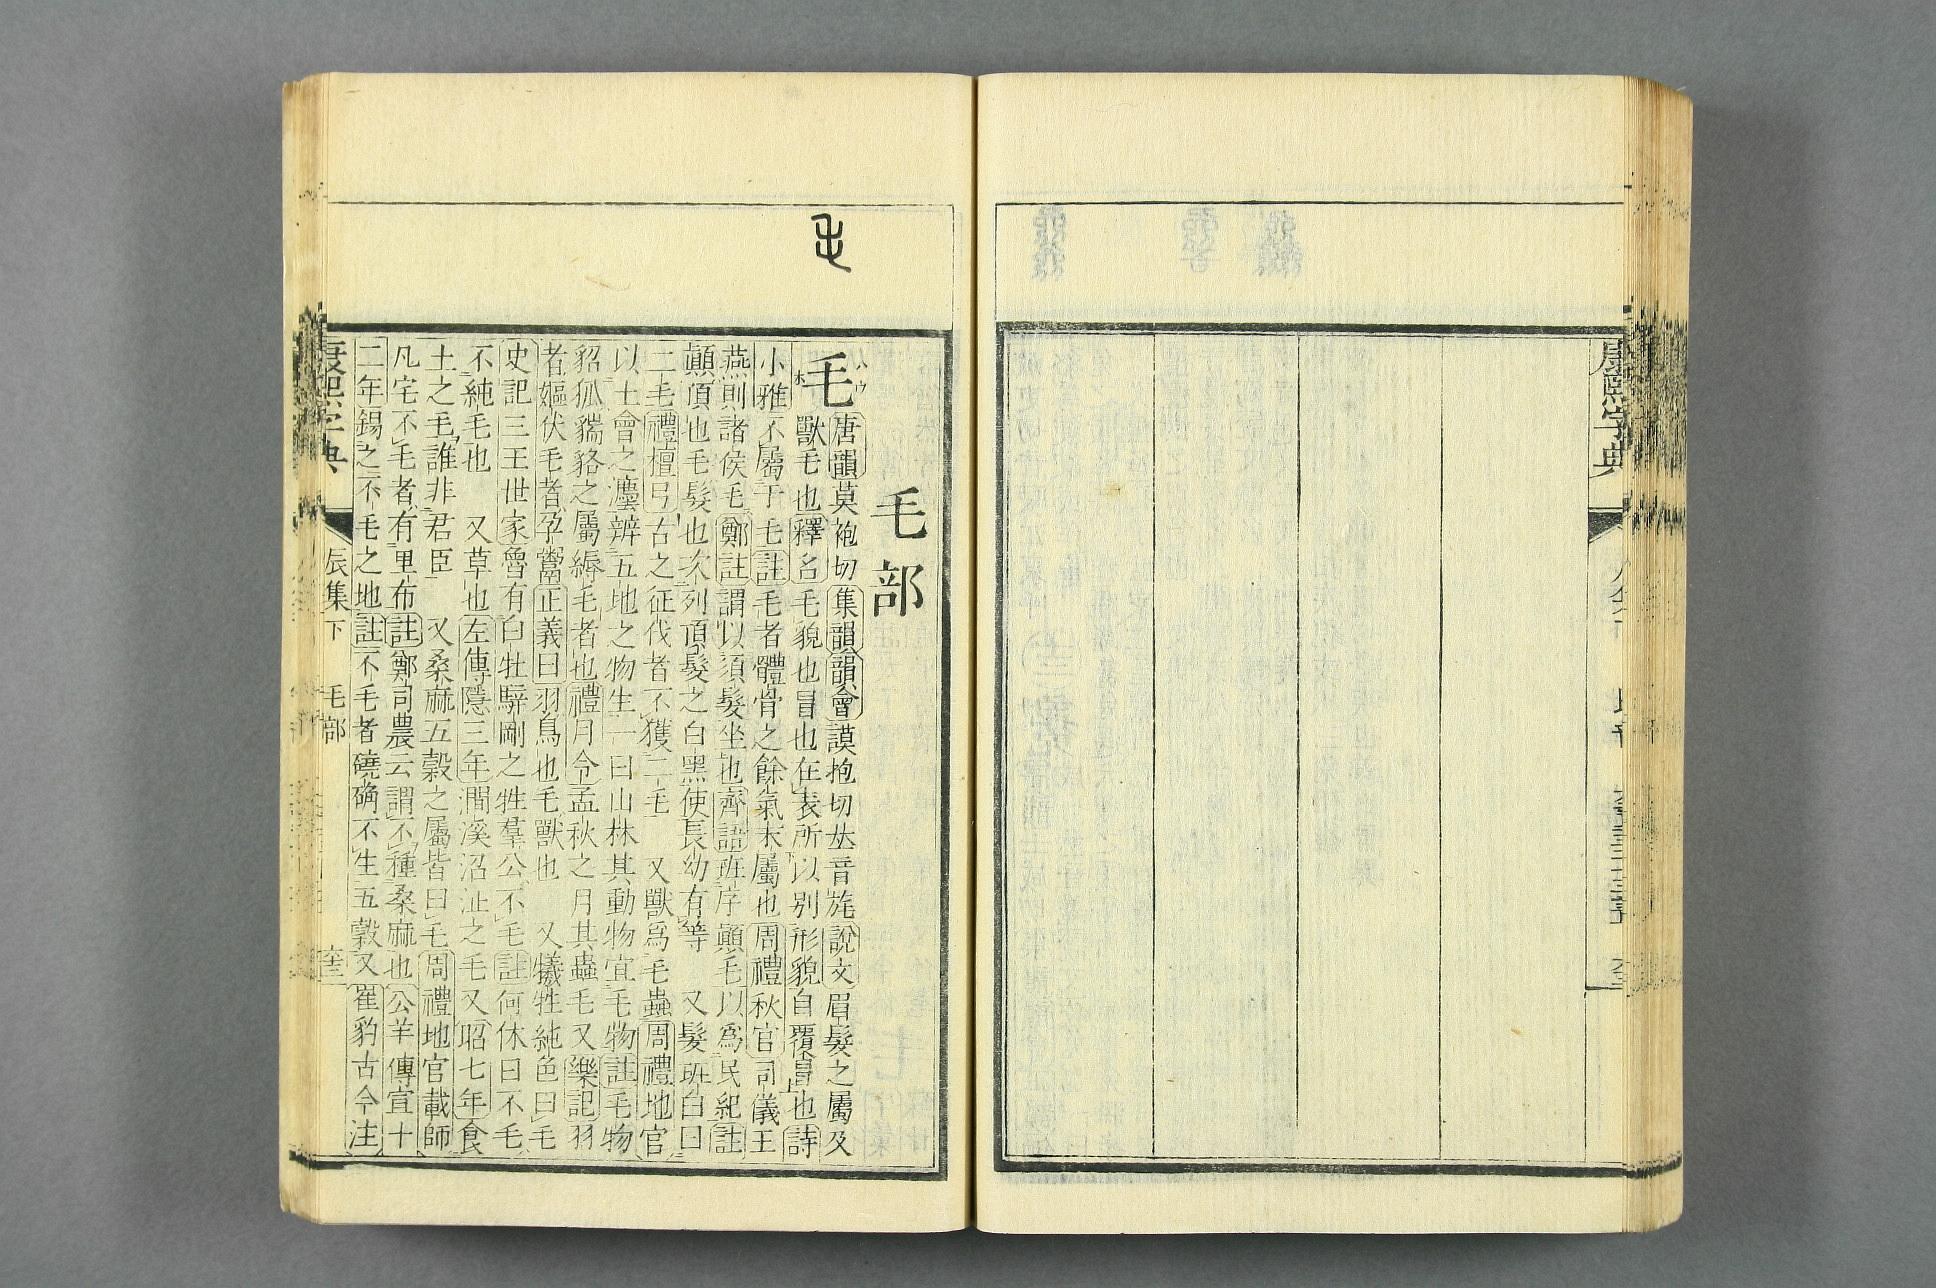 康熙字典
毛部
毛 唐韻莫袍切集韻韻會謨抱切𠀤音旄說文眉髮之屬及
獸毛也釋名毛貌也冒也在表所以別形貌自覆冒也詩
小雅不屬于毛註毛者體骨之餘氣末屬也周禮秋官司儀王
燕則諸侯毛鄭註謂以須髮坐也齊語班序顚毛以爲民紀註
顚頂也毛髮也次列頂髮之白黑使長幼有等 又髮班白曰
二毛禮檀弓古之征伐者不獲二毛 又獸爲毛蟲周禮地官
以土會之灋辨五地之物生一曰山林其動物宜毛物註毛物
貂狐貒貉之屬縟毛者也禮月令孟秋之月其蟲毛又樂記羽
者嫗伏毛者孕鬻正義曰羽鳥也毛獸也 又犧牲純色曰毛
史記三王世家魯有白牡騂剛之牲羣公不毛註何休曰不毛
不純毛也 又草也左傳隱三年澗溪沼沚之毛又昭七年食
土之毛誰非君臣 又桑麻五穀之屬皆曰毛周禮地官載師
凡宅不毛者有里布註鄭司農云謂不種桑麻也公羊傳宣十
二年錫之不毛之地註不毛者磽确不生五穀又崔豹古今注
康熙字典 辰集下 毛部